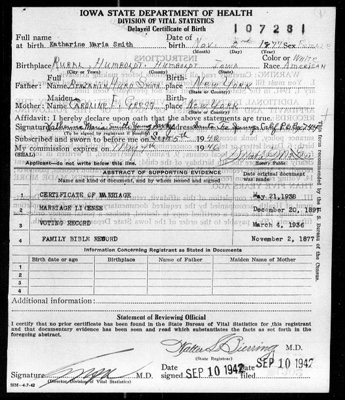 IOWA STATE DEPARTMENT OF HEALTH
DIVISION OF VITAL STATISTICS
Delayed Certificate of Birth
107231
Full name at birth Katharine Maria Smith Date of birth Nov. 2nd 1877 Sex Female
(Month) (Day) (Year)
Birthplace Rural Humboldt, Humboldt Iowa Color or Race White American
(City or Town) (County) (State)
Full
Father: Name Benjamin Hurd Smith Place of birth New York
Maiden
Mother: Name Caroline F. Gregg Place of birth New York
Affidavit: I hereby declare upon oath that the above statements are true.
Signature Katherine Maria Smith
Subscribed and sworn to before me on Sept 5th 1942
My commission expires on May 1946
Applicant—do not write below this line.
ABSTRACT OF SUPPORTING EVIDENCE
Name and kind of document, and by whom issued and signed
Date original document was made
1 CERTIFICATE OF MARRIAGE May 21, 1938
2 MARRIAGE LICENSE December 20, 1897
3 VOTING RECORD March 4, 1936
4 FAMILY BIBLE RECORD November 2, 1877
Information Concerning Registrant as Stated in Documents
Birth date or age Birthplace Name of Father Maiden Name of Mother
1
2
3
4
Additional information:
Statement of Reviewing Official
I certify that no prior certificate has been found in the State Bureau of Vital Statistics for this registrant
and that documentary evidence has been seen and read which substantiates the facts as set forth in the
foregoing abstract.
Walter L. Bierring M.D.
(State Registrar)
Signature M.D. Date signed SEP 10 1942 Date filed SEP 10 1942
(Director, Division of Vital Statistics)